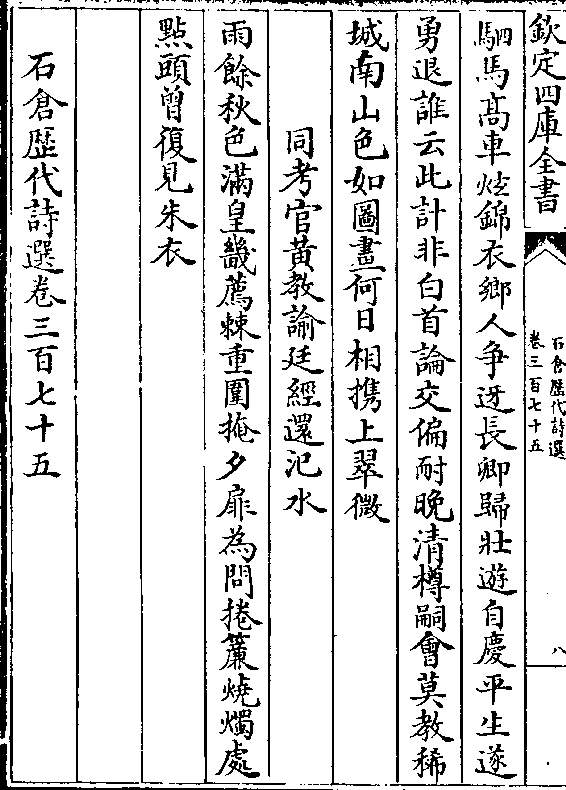 欽定四庫全書
石倉歷代詩選
卷三百七十五
八
駟馬髙車炫錦衣鄉人争迓長卿歸壯遊自慶平生遂
勇退誰云此計非白首論交偏耐晚清樽嗣會莫教稀
城南山色如圖畫何日相携上翠微
同考官黄教諭廷經還汜水
雨餘秋色滿皇畿薦棘重圍掩夕扉為問捲簾燒燭處
點頭曽復見朱衣
石倉歴代詩選卷三百七十五